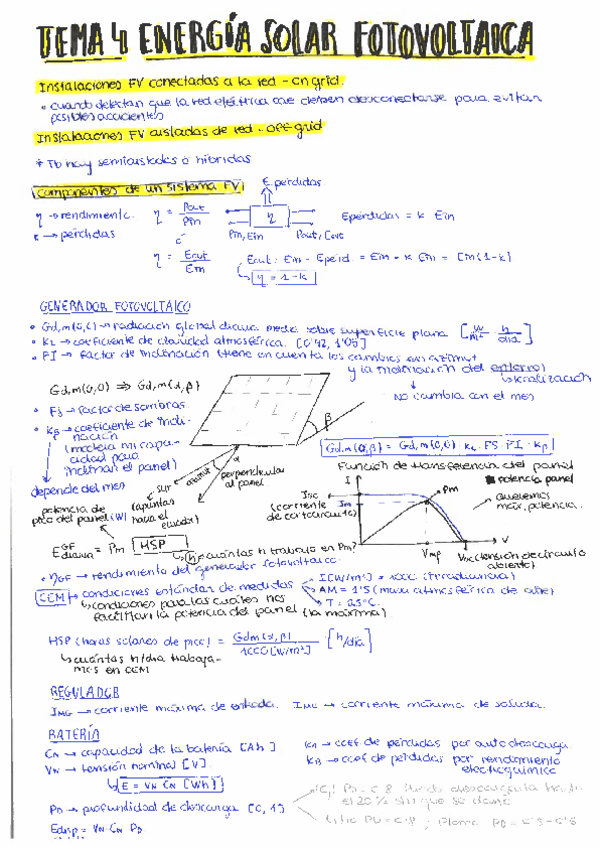 TEMA 4: ENERGÍA SOLAR FOTOVOLTAICA
Instalaciones FV conectadas a la red - on grid.
• cuando detectan que la red eléctrica cae deben desconectarse para evitar
posibles accidentes
Instalaciones FV aisladas de red - off-grid
* Tb hay semiaisladas o híbridas
Componentes de un sistema FV
E pérdidas
η → rendimiento.
η = Pout / Pin
η
Epérdidas = K Ein
K → pérdidas
Pin, Ein
Pout, Eout
η = Eout / Ein
Eout = Ein - Eperd. = Ein - K Ein = Ein(1-K)
η = 1-K
GENERADOR FOTOVOLTAICO
• Gd,m(0,0) → radiación global diaria media sobre superficie plana [W/m² · h/día]
• KL → coeficiente de claridad atmosférica. [0'92, 1'05]
• FI → Factor de inclinación (tiene en cuenta los cambios en azimut
y la inclinación del entorno)
localización
Gd,m(0,0) ⇒ Gd,m(α,β)
No cambia con el mes
• FS → factor de sombras.
• Kβ → coeficiente de incli-
nación
(modela mi capa-
cidad para
inclinar el panel)
β
α
Gd,m(α,β) = Gd,m(0,0) · KL · FS · FI · Kβ
depende del mes
sur
(apuntas
hacia el
ecuador)
azimut
perpendicular
al panel
Función de transferencia del panel
I
potencia panel
Isc
(corriente
de cortocircuito)
Im
Pm
queremos
máx. potencia.
V
Vmp
Voc (tensión de circuito
abierto)
potencia de
pico del panel (W)
E GF diaria = Pm HSP
h cuántas h trabajo en Pm?
• ηGF → rendimiento del generador fotovoltaico.
CEM → condiciones estándar de medidas
I [W/m²] = 1000. (Irradiancia)
AM = 1'5 (masa atmosférica de aire)
T = 25°C.
condiciones para las cuales nos
facilitan la potencia del panel (la máxima)
HSP (horas solares de pico) = Gdm(α,β) / 1000 [W/m²] [h/día]
cuántas h/día trabaja-
mos en CEM
REGULADOR
IMG → corriente máxima de entrada. IMC → corriente máxima de salida.
BATERÍA
CN → capacidad de la batería [Ah]
KA → coef de pérdidas por autodescarga
VN → tensión nominal [V].
KB → coef de pérdidas por rendimiento
electroquímico
E = VN CN [Wh]
PD → profundidad de descarga [0, 1]
PD = 0'8 Puedo descargarla hasta
el 20% sin que se dañe
Litio PD = 0'8 ; Plomo PD = 0'5 - 0'6
Edisp = VN CN PD